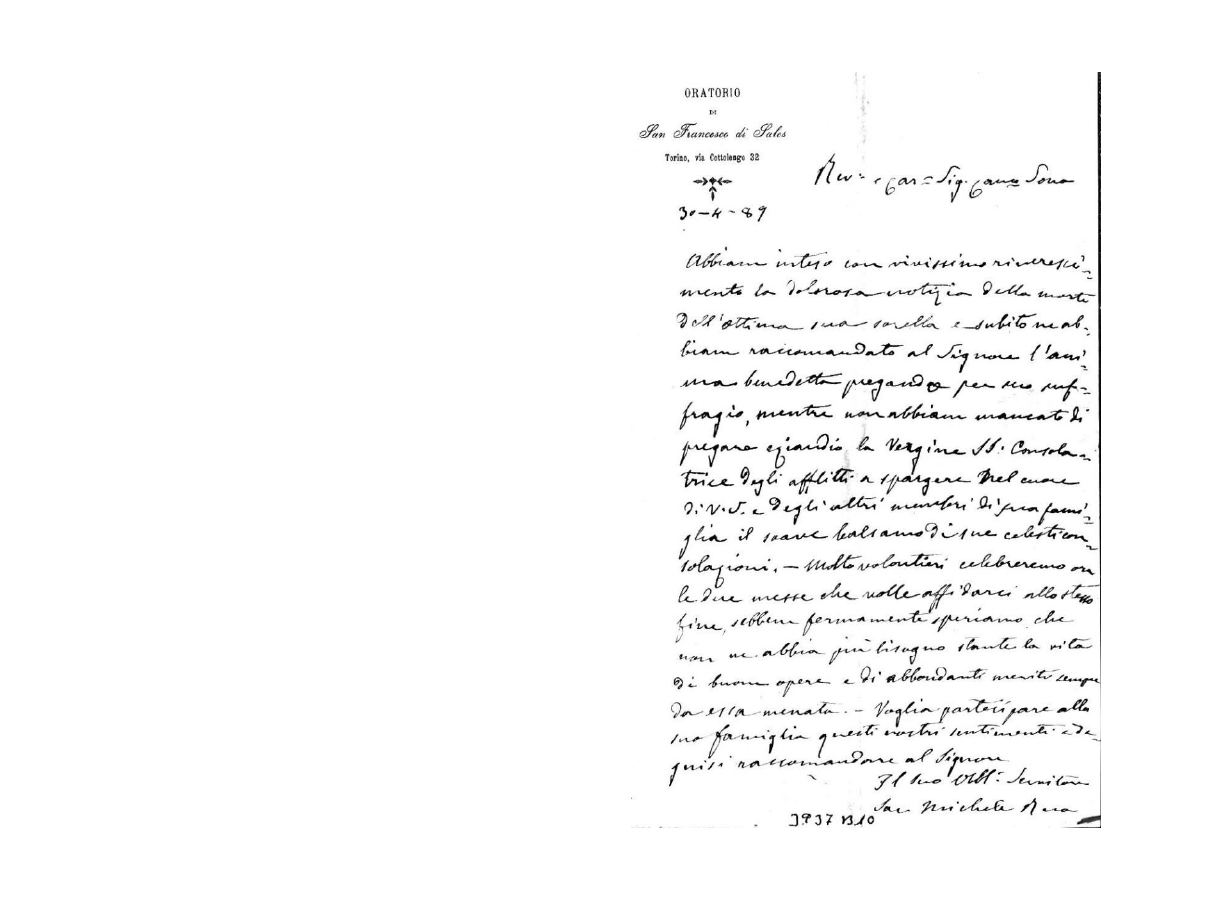 ORATORIO
DI
San Francesco di Sales
Torino, via Cottolengo 32
30-4-89
Rev.º e Car.º Sig. Can.º Sona
Abbiam inteso con vivissimo rincresci-
mento la dolorosa notizia della morte
dell'ottima sua sorella e subito ne ab-
biam raccomandato al Signore l'ani-
ma benedetta pregando per suo suf-
fragio, mentre non abbiam mancato di
pregare eziandio la Vergine SS. Consola-
trice degli afflitti a spargere nel cuore
di V. S. e degli altri membri di sua fami-
glia il soave balsamo di sue celesti con-
solazioni. – Molto volontieri celebreremo
le due messe che volle affidarci allo stesso
fine, sebbene fermamente speriamo che
non ne abbia più bisogno stante la vita
di buone opere e di abbondanti meriti sempre
da essa menata. – Voglia partecipare alla
sua famiglia questi nostri sentimenti
raccomandare al Signore
Il suo Obbl. Servitore
Sac. Michele Rua
3937 B10